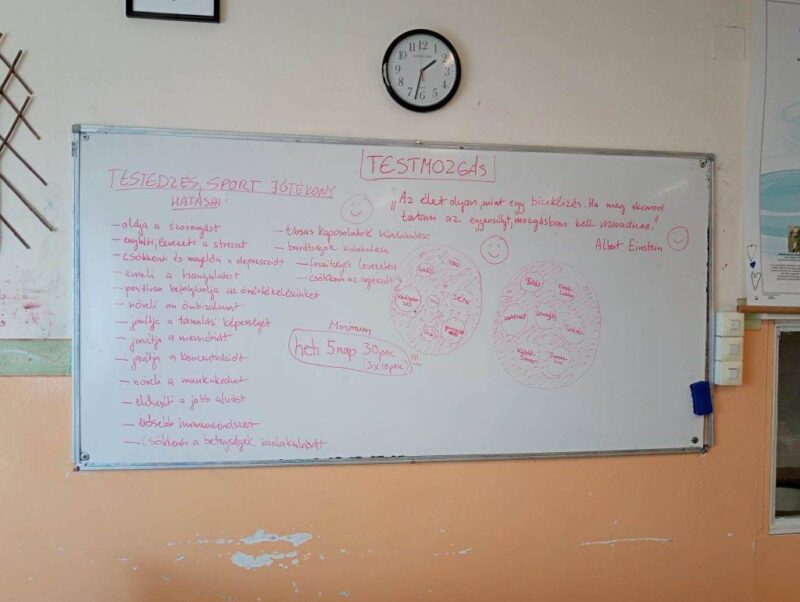 TESTMOZGÁS
TESTEDZÉS, SPORT JÓTÉKONY
HATÁSAI:
— oldja a szorongást
— enyhíti, levezeti a stresszt
— csökkenti és megelőzi a depressziót
— emeli a hangulatot
— pozitívan befolyásolja az önértékelésünket
— növeli az önbizalmat
— javítja a tanulási képességet
— javítja a memóriát
— javítja a koncentrációt
— növeli a munkakedvet
— elősegíti a jobb alvást
— erősebb immunrendszer
— csökkenti a betegségek kialakulását
— társas kapcsolatok kialakulása
— barátságok kialakulása
— feszültségek levezetése
— csökken az agresszió
„Az élet olyan, mint egy biciklizés. Ha meg akarod
tartani az egyensúlyt, mozgásban kell maradnod."
Albert Einstein
Minimum
heti 5 nap 30 perc
(3x10 perc
!!!
12
1
2
3
4
5
6
7
8
9
10
11